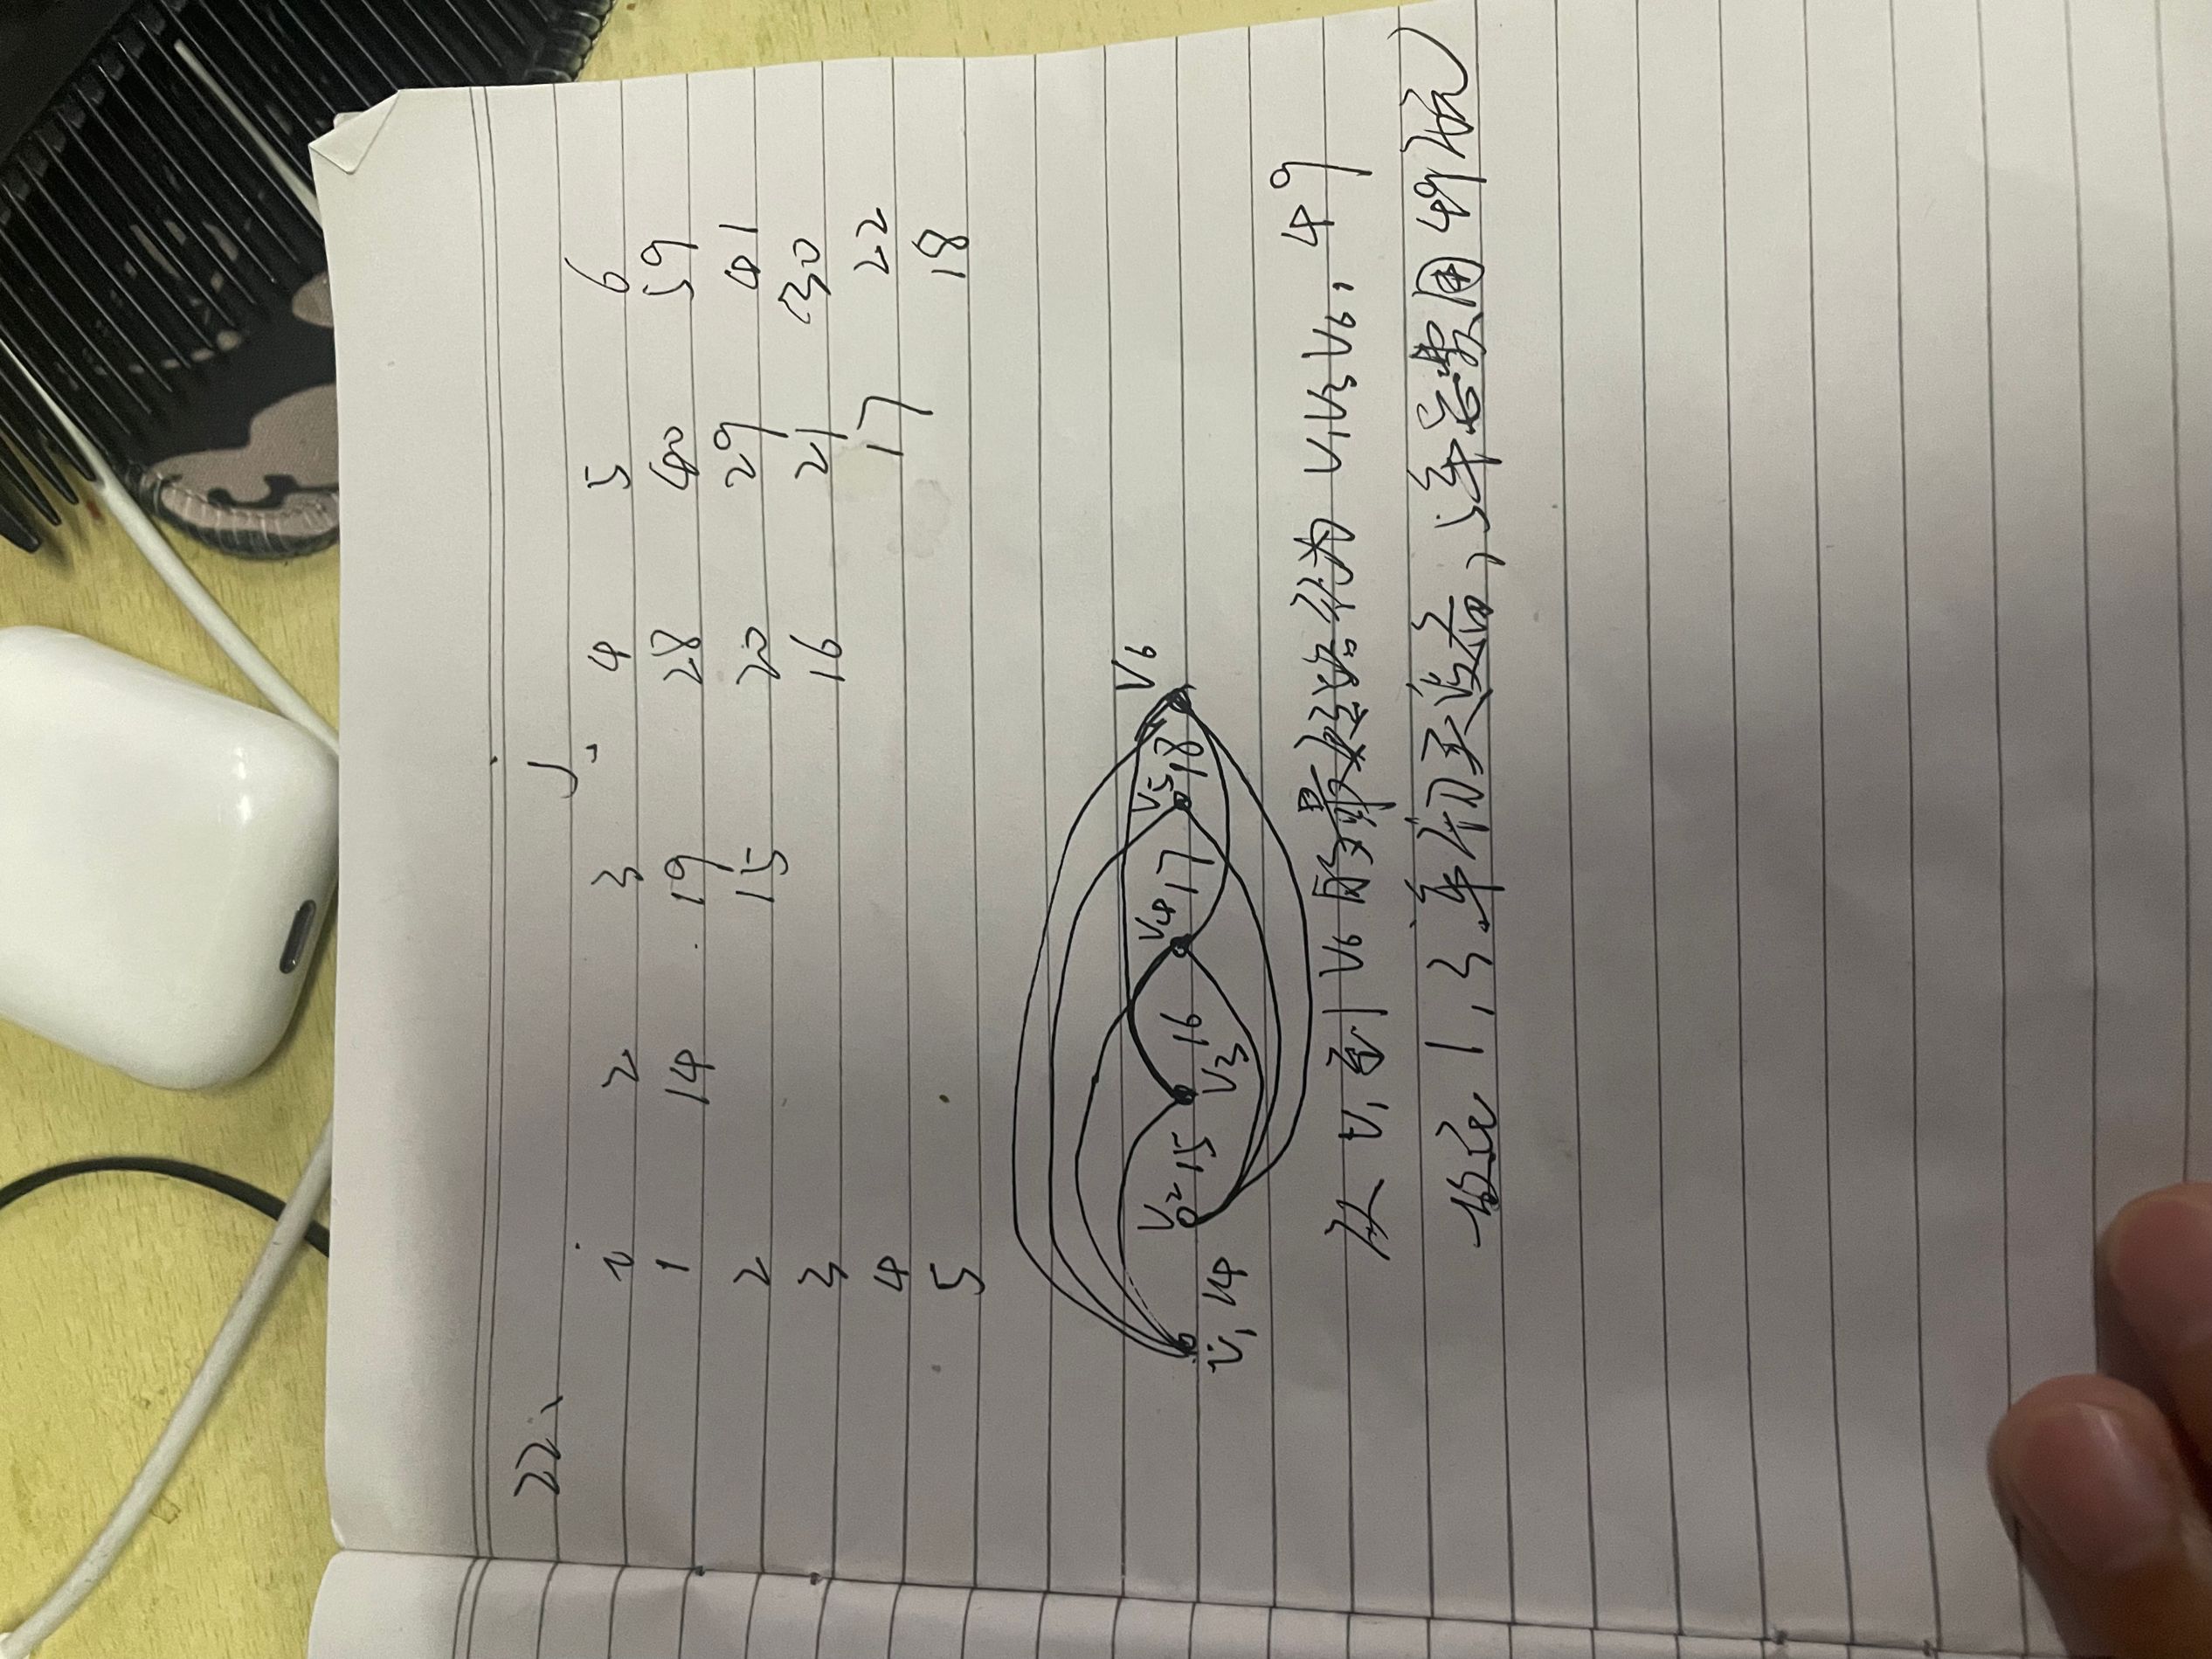 22、
j
i 2 3 4 5 6
1 14 19 28 40 59
2 15 20 29 41
3 16 21 30
4 17 22
5 18
V6
V2 V4 V5
15 16 17 18
v1 14 V3
从 v1 到 V6 的最短路径为 V1V3V6, 49
故在 1, 3 年初买设备, 5年总费用 49万元